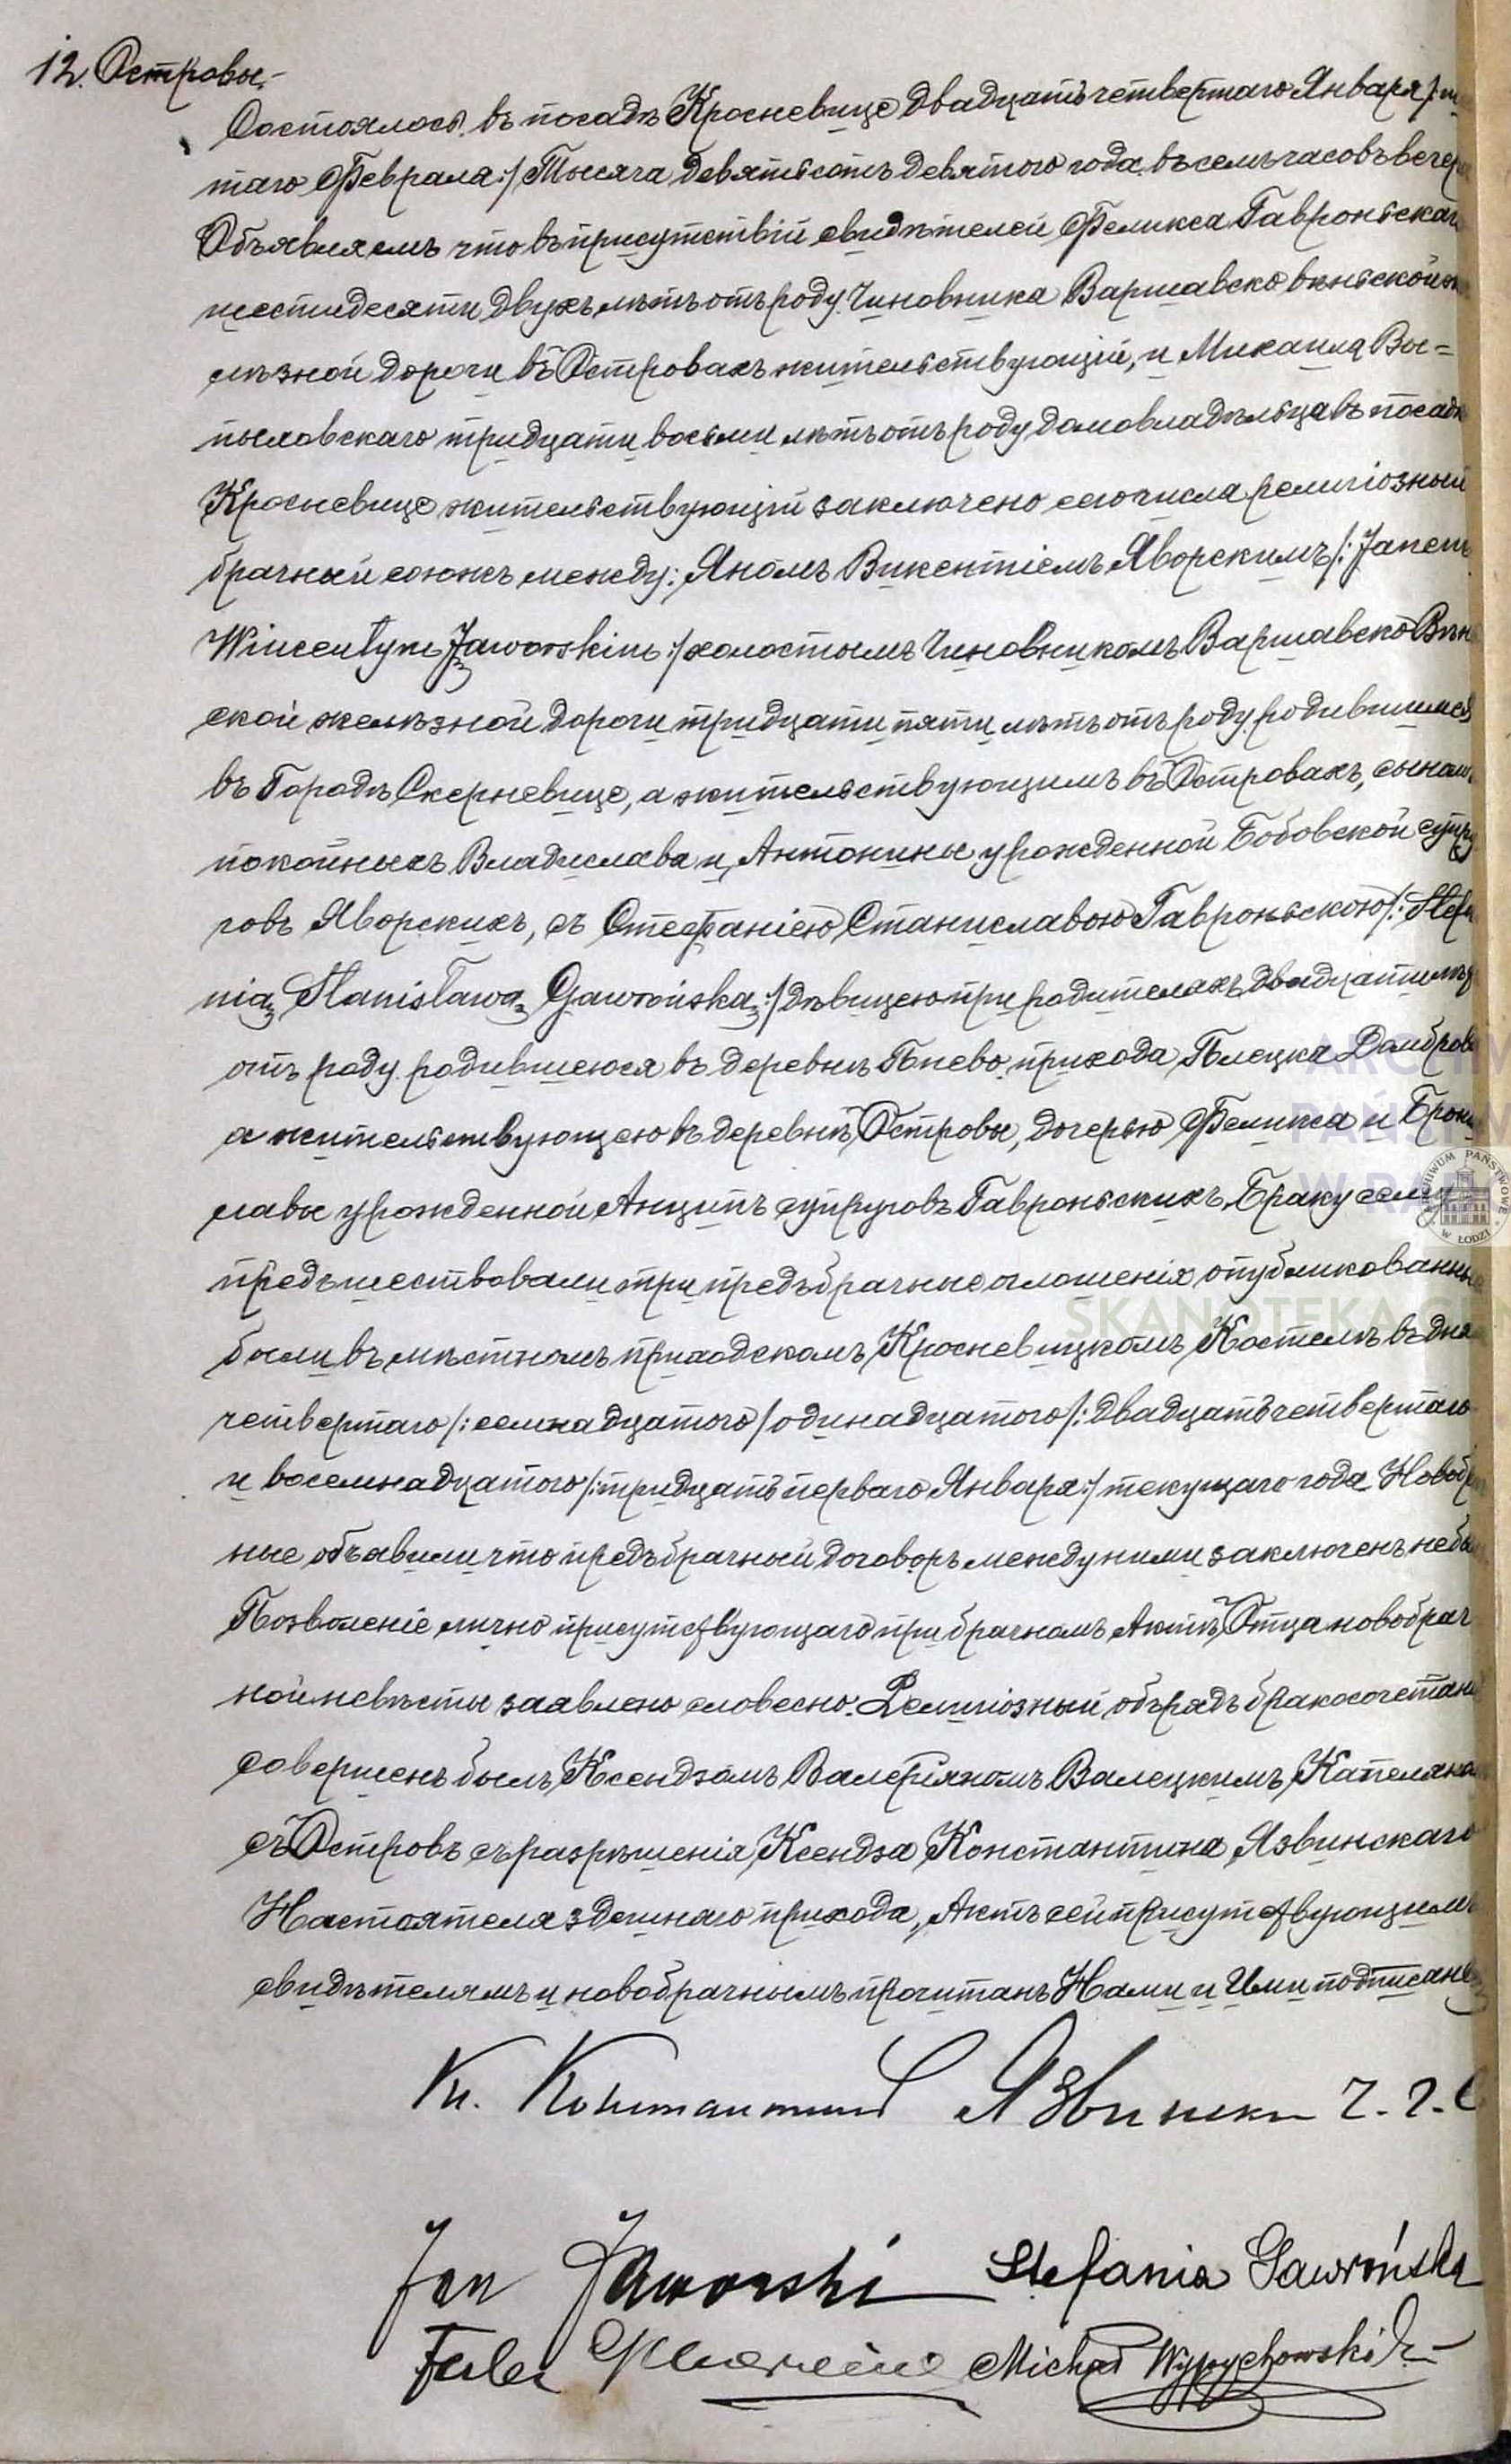 12. Островы.
Состоялось въ посадѣ Кросневице двадцать четвертаго Января /:ш
таго Февраля:/ Тысяча девятьсотъ девятого года въ семь часовъ вечера
Объявляемъ что въ присутствiи свидѣтелей Феликса Гавроньскаго
шестидесяти двухъ лѣтъ отъ роду Чиновника Варшавско вѣньской ж
лѣзной дороги въ Островахъ жительствующiй, и Михаила Вы=
пыховскаго тридцати восьми лѣтъ отъ роду домовладѣльца въ посадѣ
Кросневице жительствующiй заключено сего числа религiозный
брачный союзъ между: Яномъ Викентiемъ Яворскимъ /:Janem
Wincentym Jaworskim:/ холостымъ Чиновникомъ Варшавско Вѣнь
ской желѣзной дороги тридцати пяти лѣтъ отъ роду родившимся
въ Городѣ Скерневице, а жительствующимъ въ Островахъ, сыномъ
покойныхъ Владислава и Антонины урожденной Бобовской супру
говъ Яворскихъ, съ Стефанiею Станиславою Гавроньскою /:Stefa
nią Stanisławą Gawrońską:/ дѣвицею при родителахъ двадцати лѣтъ
отъ роду родившеюся въ деревнѣ Пнево прихода Плецка Домброва
а жительствующею въ деревнѣ Островы, дочерью Феликса и Брони
славы урожденной Анципъ супруговъ Гавроньскихъ. Браку сему
предъшествовали три предъбрачные оглошенiя опубликованны
были въ мѣстномъ приходскомъ Кросневицкомъ Костелѣ въ дня
четвертаго /:семнадцатого/ одинадцатого /:двадцать четвертаго
и восемнадцатого /:тридцать перваго Января:/ текущаго года Новобрач
ные объявили что предъбрачный договоръ между ними заключенъ небы
Позволенiе лично присутствующаго при брачномъ Актѣ Отца новобрач
ной невѣсты заявлено словесно. Религiозный обърядъ бракосочетанi
совершенъ былъ Ксендзомъ Валерiяномъ Валецкимъ Капеляно
съ Островъ съ разрѣшенiя Ксендза Константина Язвинскаго
Настоятеля здешнаго прихода, Актъ сей присутствующимъ
свидѣтелямъ и новобрачнымъ прочитанъ Нами и Ими подписанъ
Кс. Константинъ Язвински
Jan Jaworski Stefania Gawrońska
Michał Wypychowski
ARCHIWUM PAŃSTWOWE W ŁODZI
SKANOTEKA.GEN